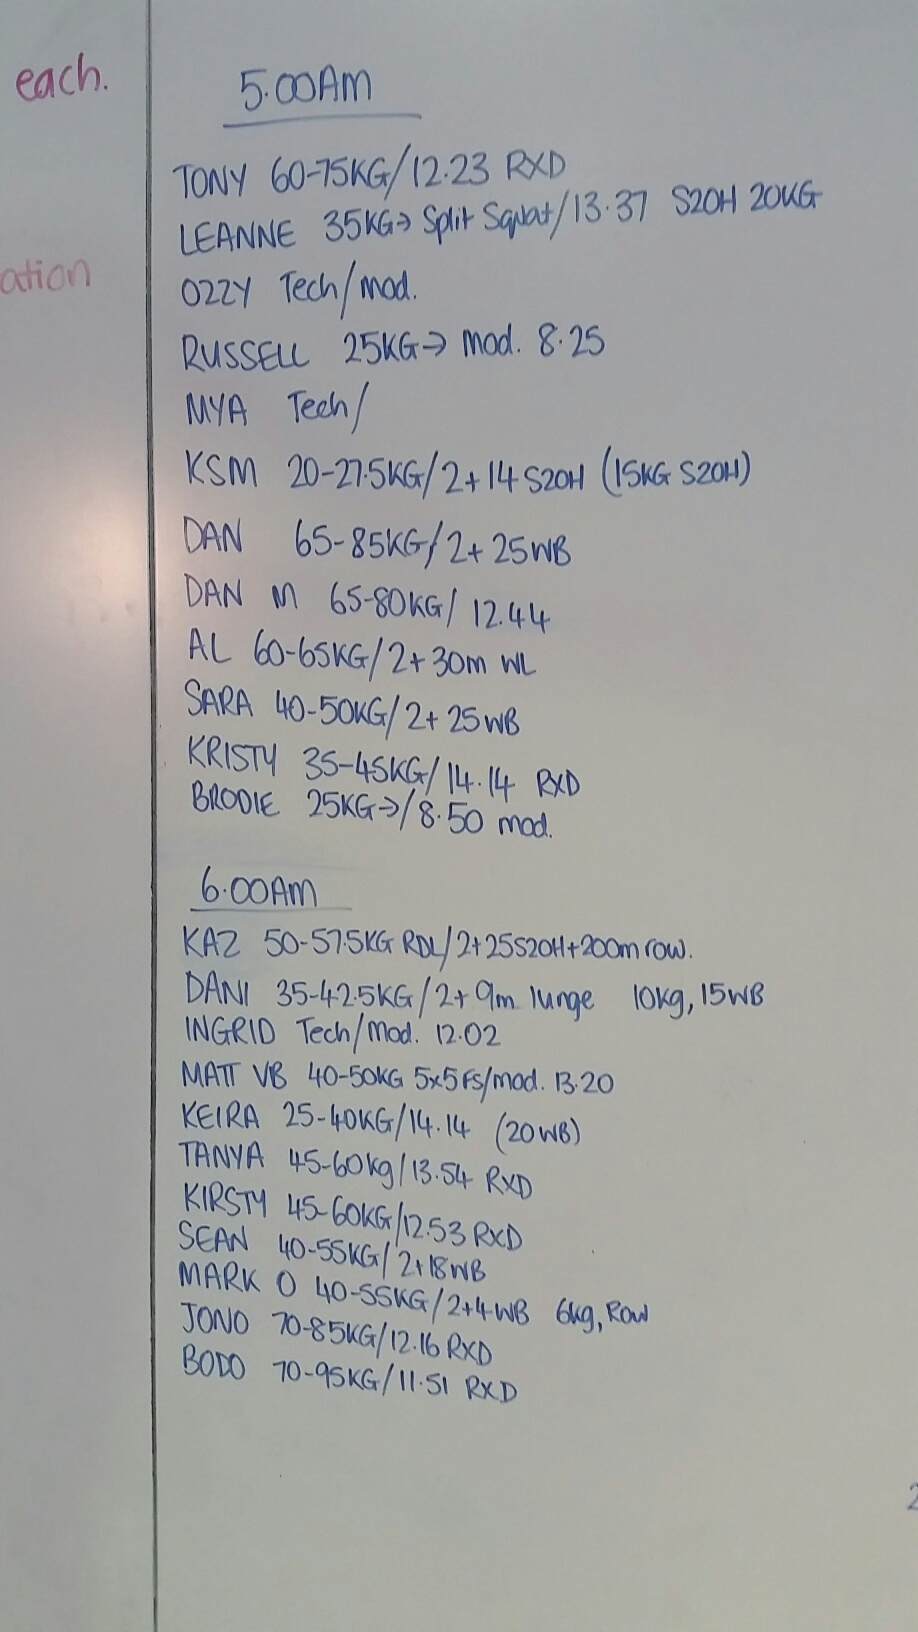 each.
ation
5.00AM
TONY 60-75KG/12.23 RXD
LEANNE 35KG→ Split Squat/13.37 S2OH 20KG
OZZY Tech/mod.
RUSSELL 25KG→ mod. 8.25
MYA Tech/
KSM 20-27.5KG/2+14 S2OH (15KG S2OH)
DAN 65-85KG/2+25WB
DAN M 65-80KG/12.44
AL 60-65KG/2+30m WL
SARA 40-50KG/2+25WB
KRISTY 35-45KG/14.14 RXD
BRODIE 25KG→/8.50 mod.
6.00AM
KAZ 50-57.5KG RDL/2+25S2OH+200m row.
DANI 35-42.5KG/2+9m lunge 10kg, 15WB
INGRID Tech/Mod. 12.02
MATT VB 40-50KG 5x5FS/mod. 13.20
KEIRA 25-40KG/14.14 (20WB)
TANYA 45-60kg/13.54 RXD
KIRSTY 45-60KG/12.53 RXD
SEAN 40-55KG/2+18WB
MARK O 40-55KG/2+4WB 6kg, Row
JONO 70-85KG/12.16 RXD
BODO 70-95KG/11.51 RXD
2